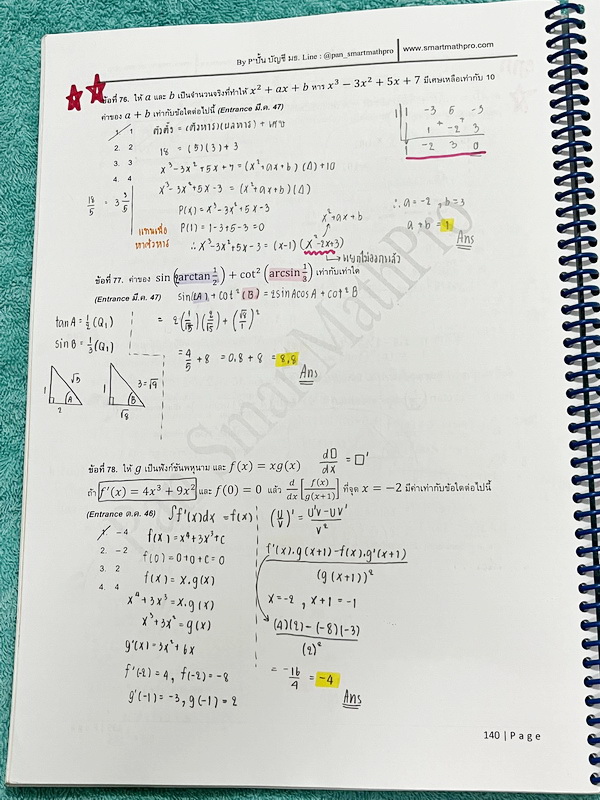 By P'ปั้น บัญชี มธ. Line : @pan_smartmathpro | www.smartmathpro.com
ข้อที่ 76. ให้ a และ b เป็นจำนวนจริงที่ทำให้ x² + ax + b หาร x³ − 3x² + 5x + 7 มีเศษเหลือเท่ากับ 10
ค่าของ a + b เท่ากับข้อใดต่อไปนี้ (Entrance มี.ค. 47)
1. 1
2. 2
3. 3
4. 4
ตัวตั้ง = (ตัวหาร)(ผลหาร) + เศษ
18 = (5)(3) + 3
18/5 = 3 3/5
x³-3x²+5x+7 = (x²+ax+b)(Δ)+10
x³-3x²+5x-3 = (x²+ax+b)(Δ)
P(x) = x³-3x²+5x-3
P(1) = 1-3+5-3 = 0
แทนเพื่อ
หาตัวหาร
x²+ax+b
∴ x³-3x²+5x-3 = (x-1)(x²-2x+3)
แยกไม่ออกแล้ว
1 | 1 -3 5 -3
1 + -2 + 3
1 -2 3 0
∴ a = -2 , b = 3
a + b = 1
Ans
ข้อที่ 77. ค่าของ sin (2arctan 1/2) + cot² (arcsin 1/3) เท่ากับเท่าใด
(Entrance มี.ค. 47)
sin(2A) + cot²(B) = 2sinAcosA + cot²B
tanA = 1/2 (Q₁)
sinB = 1/3 (Q₁)
= 2(1/√5)(2/√5) + (√8/1)²
= 4/5 + 8 = 0.8 + 8 = 8.8
Ans
1 √5 2 A
1 3=√9 √8 B
ข้อที่ 78. ให้ g เป็นฟังก์ชันพหุนาม และ f(x) = xg(x)
d□/dx = □'
ถ้า f′(x) = 4x³ + 9x² และ f(0) = 0 แล้ว d/dx [f(x)/g(x+1)] ที่จุด x = −2 มีค่าเท่ากับข้อใดต่อไปนี้
(Entrance ต.ค. 46)
1. −4
2. −2
3. 2
4. 4
∫f'(x)dx = f(x)
f(x) = x⁴+3x³+c
f(0) = 0+0+c = 0
f(x) = x·g(x)
x⁴+3x³ = x·g(x)
x³+3x² = g(x)
g'(x) = 3x²+6x
f'(-2) = 4, f(-2) = -8
g'(-1) = -3, g(-1) = 2
(u/v)' = u'v-uv'/v²
f'(x)·g(x+1)-f(x)·g'(x+1)
(g(x+1))²
x = -2 , x+1 = -1
(4)(2)-(-8)(-3)
(2)²
= -16/4 = -4
Ans
SmartMathPro
140 | Page